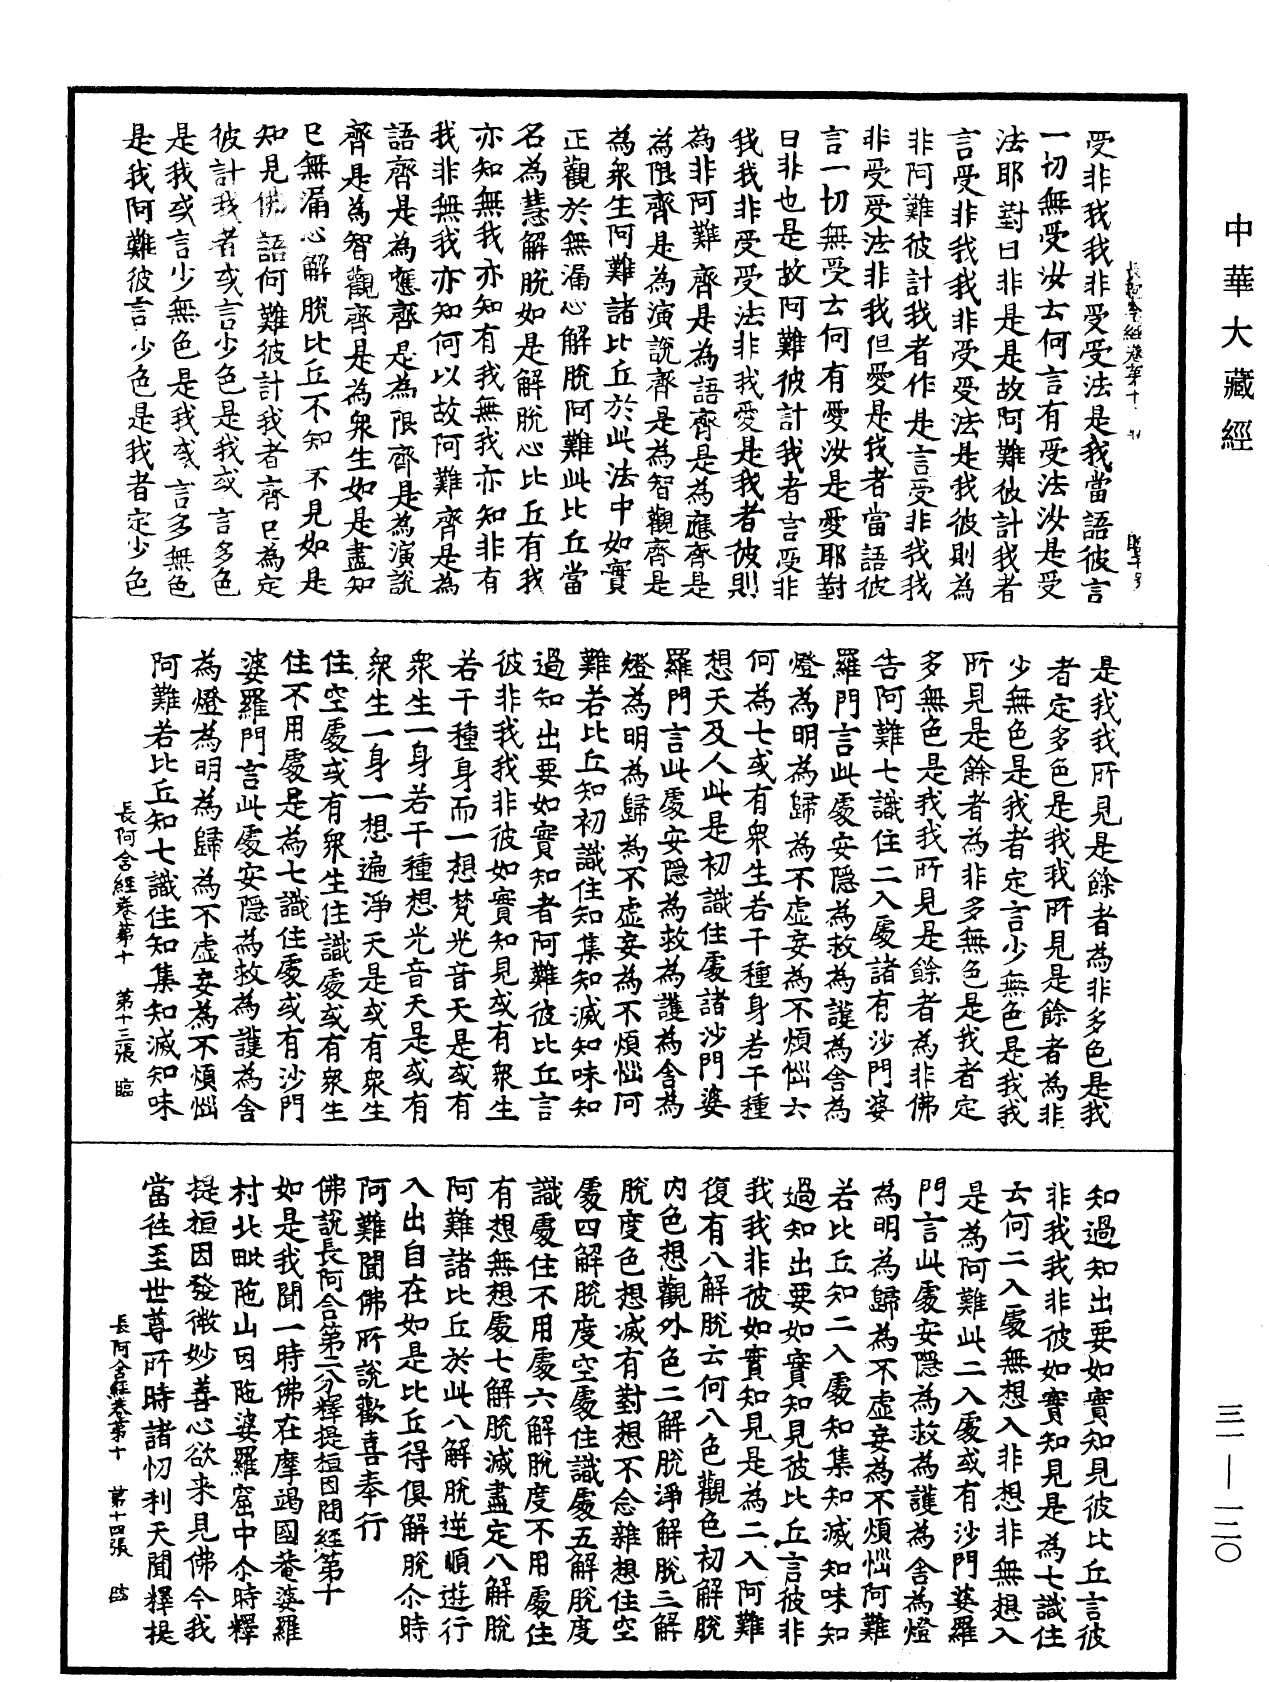 中華大藏經
受非我我非受受法是我當語彼言
一切無受汝云何言有受法汝是受
法耶對曰非是是故阿難彼計我者
言受非我我非受受法是我彼則為
非阿難彼計我者作是言受非我我
非受受法非我但愛是我者當語彼
言一切無受云何有愛汝是愛耶對
曰非也是故阿難彼計我者言受非
我我非受受法非我愛是我者彼則
為非阿難齊是為語齊是為應齊是
為限齊是為演說齊是為智觀齊是
為衆生阿難諸比丘於此法中如實
正觀於無漏心解脫阿難此比丘當
名為慧解脫如是解脫心比丘有我
亦知無我亦知有我無我亦知非有
我非無我亦知何以故阿難齊是為
語齊是為應齊是為限齊是為演說
齊是為智觀齊是為衆生如是盡知
已無漏心解脫比丘不知不見如是
知見佛語何難彼計我者齊已為定
彼計我者或言少色是我或言多色
是我或言少無色是我或言多無色
是我阿難彼言少色是我者定少色
是我我所見是餘者為非多色是我
者定多色是我我所見是餘者為非
少無色是我者定言少無色是我我
所見是餘者為非多無色是我者定
多無色是我我所見是餘者為非佛
告阿難七識住二入處諸有沙門婆
羅門言此處安隱為救為護為舍為
燈為明為歸為不虛妄為不煩惱云
何為七或有衆生若干種身若干種
想天及人此是初識住處諸沙門婆
羅門言此處安隱為救為護為舍為
燈為明為歸為不虛妄為不煩惱阿
難若比丘知初識住知集知滅知味知
過知出要如實知者阿難彼比丘言
彼非我我非彼如實知見或有衆生
若干種身而一想梵光音天是或有
衆生一身若干種想光音天是或有
衆生一身一想遍淨天是或有衆生
住空處或有衆生住識處或有衆生
住不用處是為七識住處或有沙門
婆羅門言此處安隱為救為護為舍
為燈為明為歸為不虛妄為不煩惱
阿難若比丘知七識住知集知滅知味
長阿含經卷第十 第十三張 臨
知過知出要如實知見彼比丘言彼
非我我非彼如實知見是為七識住
云何二入處無想入非想非無想入
是為阿難此二入處或有沙門婆羅
門言此處安隱為救為護為舍為燈
為明為歸為不虛妄為不煩惱阿難
若比丘知二入處知集知滅知味知
過知出要如實知見彼比丘言彼非
我我非彼如實知見是為二入阿難
復有八解脫云何八色觀色初解脫
內色想觀外色二解脫淨解脫三解
脫度色想滅有對想不念雜想住空
處四解脫度空處住識處五解脫度
識處住不用處六解脫度不用處住
有想無想處七解脫滅盡定八解脫
阿難諸比丘於此八解脫逆順遊行
入出自在如是比丘得俱解脫尒時
阿難聞佛所說歡喜奉行
佛說長阿含第二分釋提桓因問經第十
如是我聞一時佛在摩竭國菴婆羅
村北毗陁山因陁婆羅窟中尒時釋
提桓因發微妙善心欲来見佛今我
當往至世尊所時諸忉利天聞釋提
長阿含經卷第十 第十四張 臨
三一—一二〇